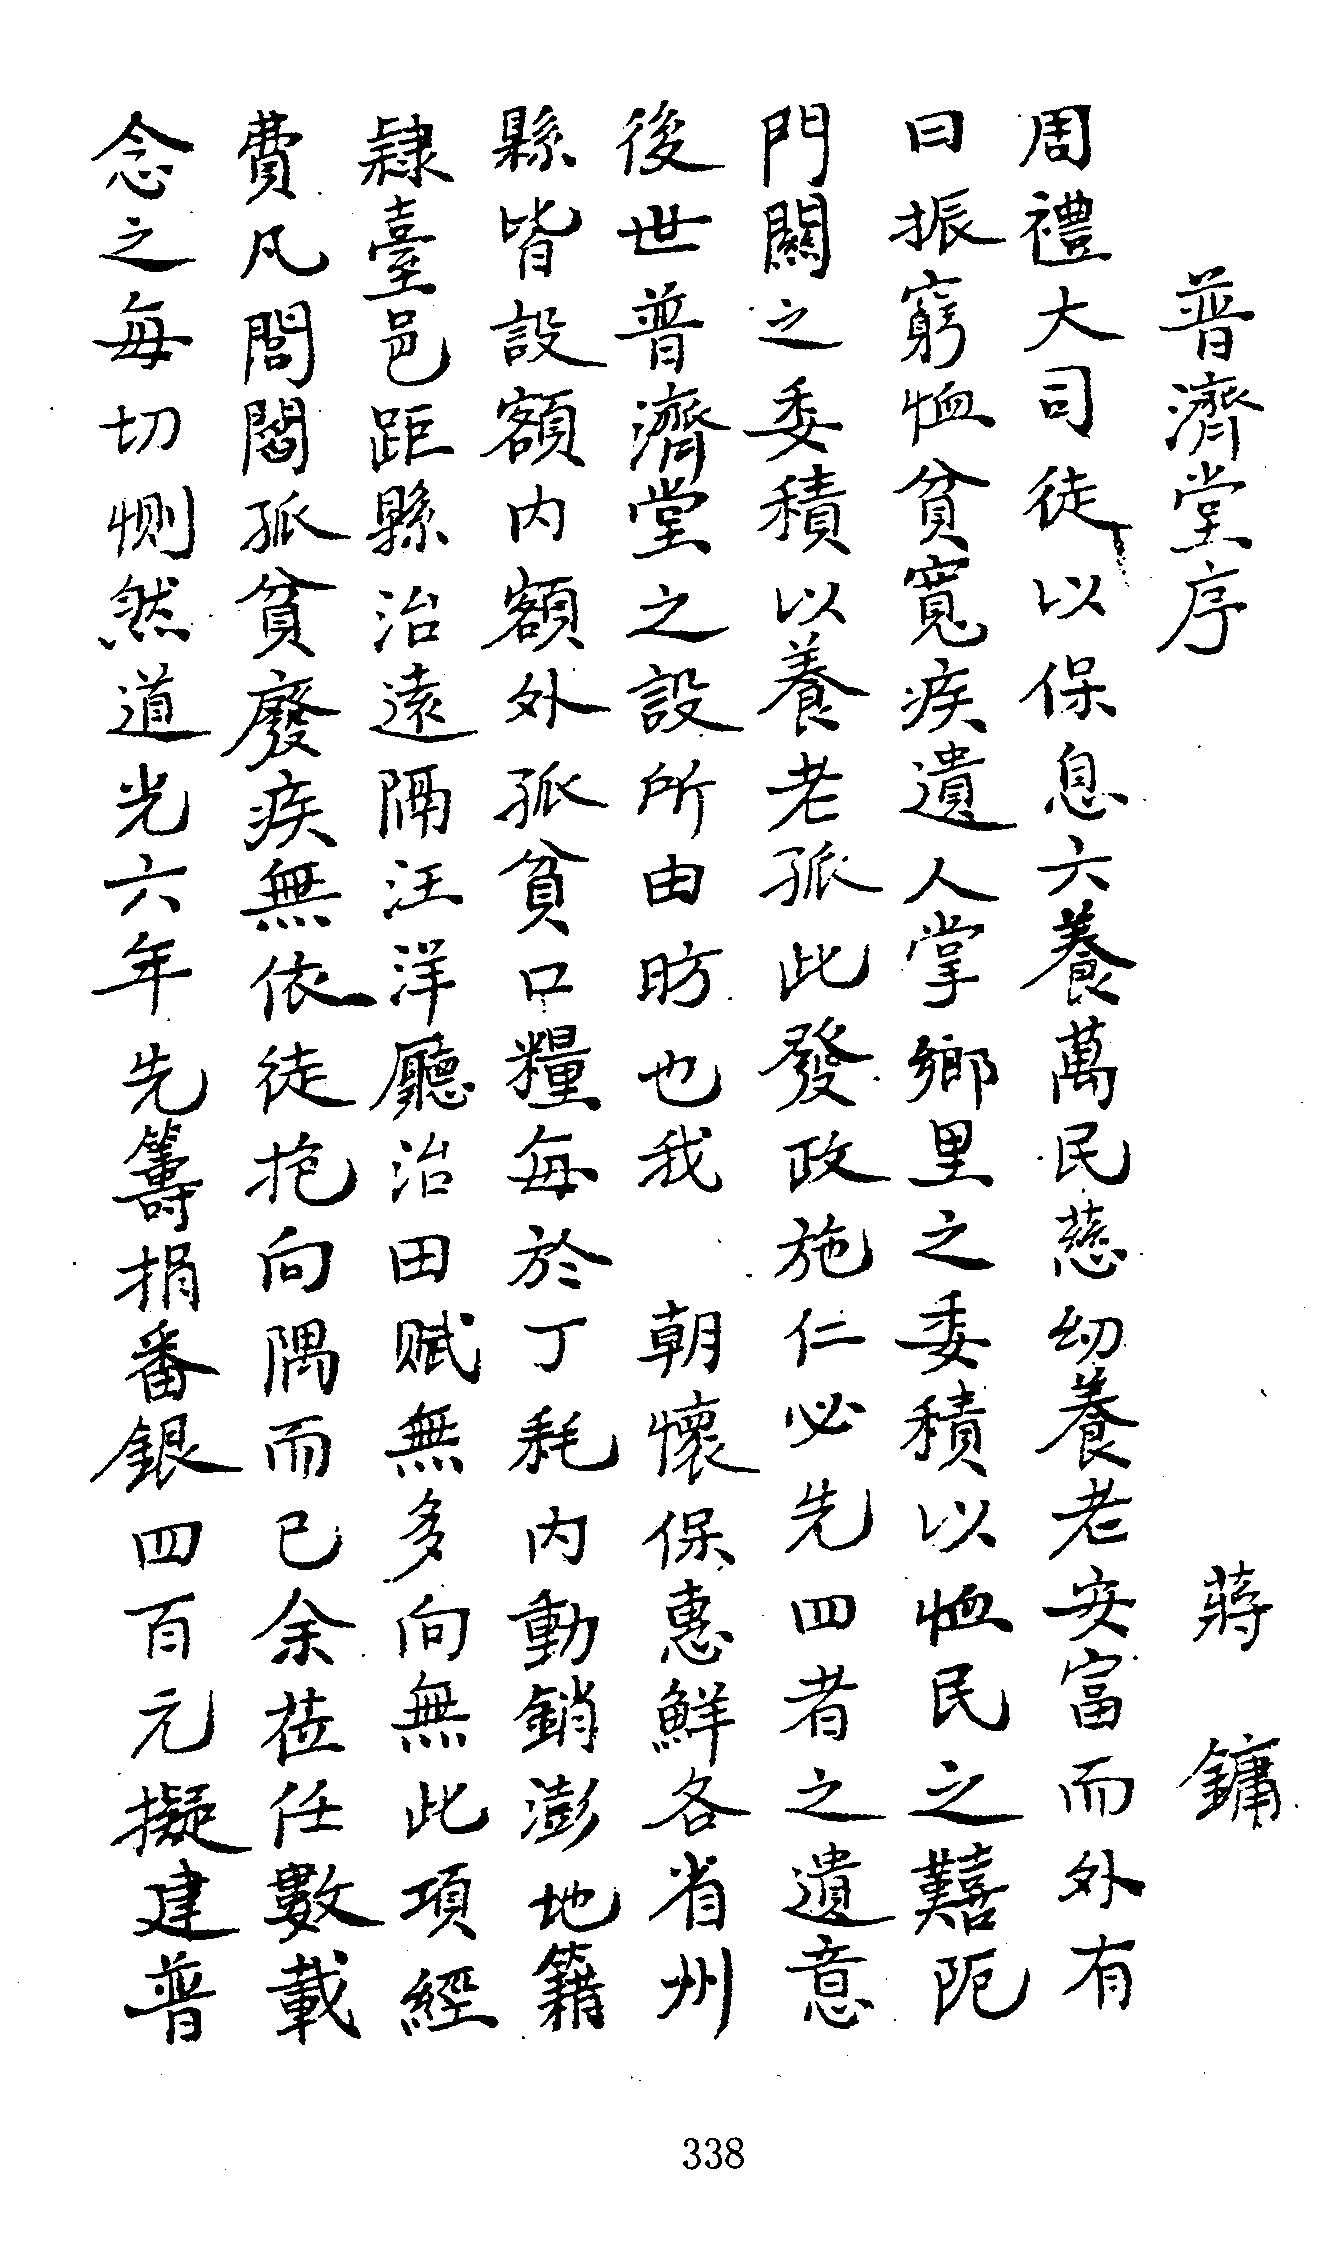 普濟堂序
蔣鏞
周禮大司徒以保息六養萬民慈幼養老安富而外有
曰振窮恤貧寬疾遺人掌鄉里之委積以恤民之囏阨
門關之委積以養老孤此發政施仁必先四者之遺意
後世普濟堂之設所由昉也我 朝懷保惠鮮各省州
縣皆設額內額外孤貧口糧每於丁耗內動銷澎地籍
隸臺邑距縣治遠隔汪洋廳治田賦無多向無此項經
費凡閭閻孤貧廢疾無依徒抱向隅而已余莅任數載
念之每切惻然道光六年先籌捐番銀四百元擬建普
338